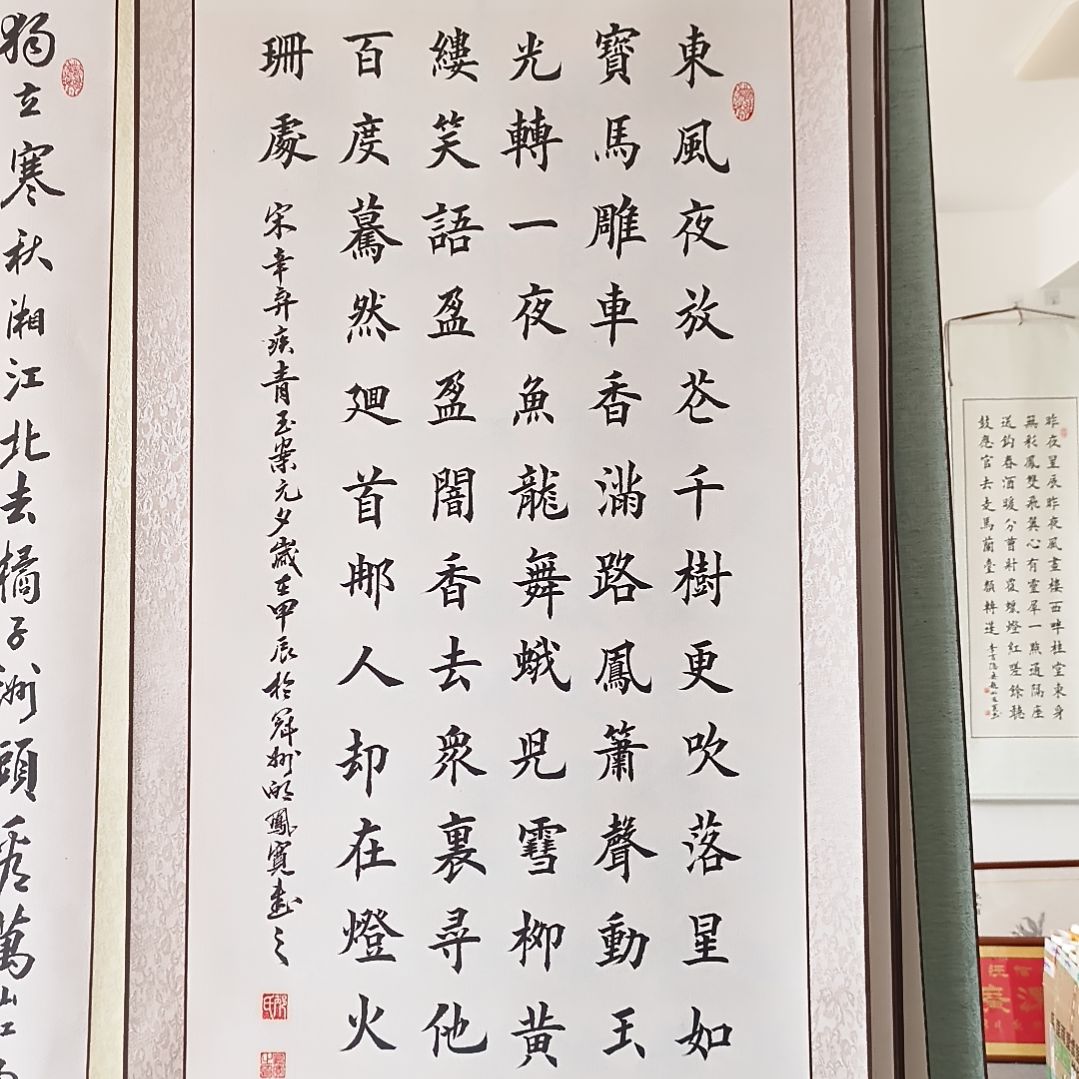 昨夜星辰昨夜風畫樓西畔桂堂東身
無彩鳳雙飛翼心有靈犀一點通隔座
送鈎春酒暖分曹射覆蠟燈紅嗟餘聽
鼓應官去走馬蘭臺類轉蓬
東風夜放花千樹更吹落星如
寶馬雕車香滿路鳳簫聲動玉
光轉一夜魚龍舞蛾兒雪柳黃
縷笑語盈盈闇香去衆裏尋他
百度驀然廻首那人却在燈火
珊處
宋辛弃疾青玉案元夕歲在甲辰於冠州鳳寬書之
獨立寒秋湘江北去橘子洲頭看萬山紅